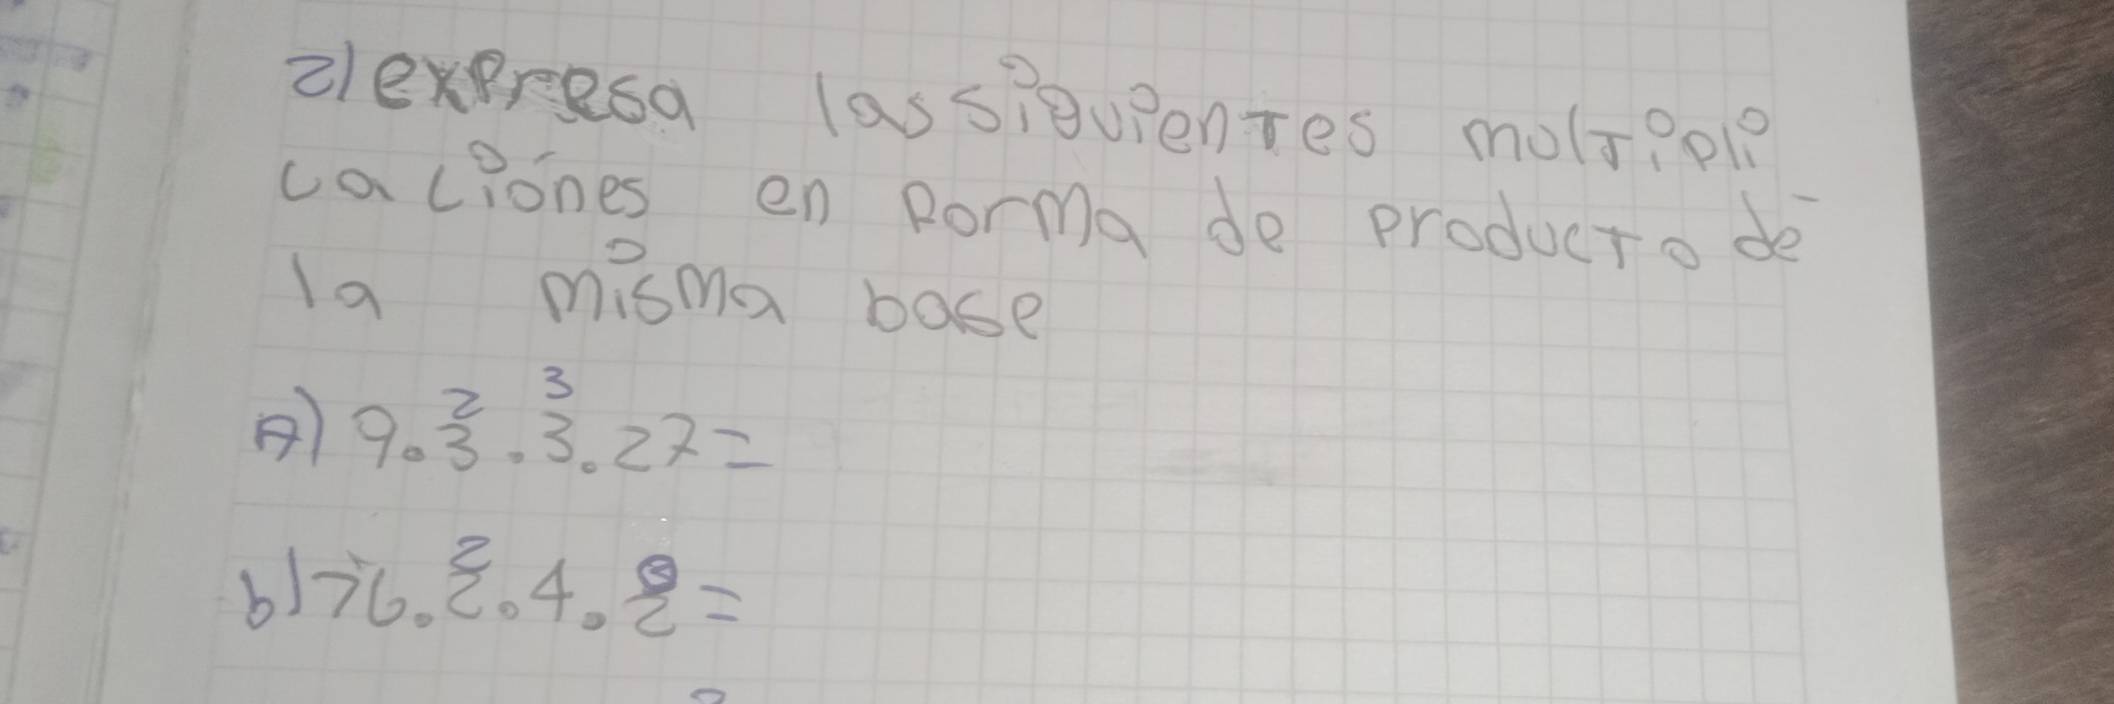 2) expresa las siguientes moltipli
caciones en Forma de producto de
la misma base
A) 9 . 3² . 3³ . 27 =
b) 76 . 2² . 4 . 2³ =